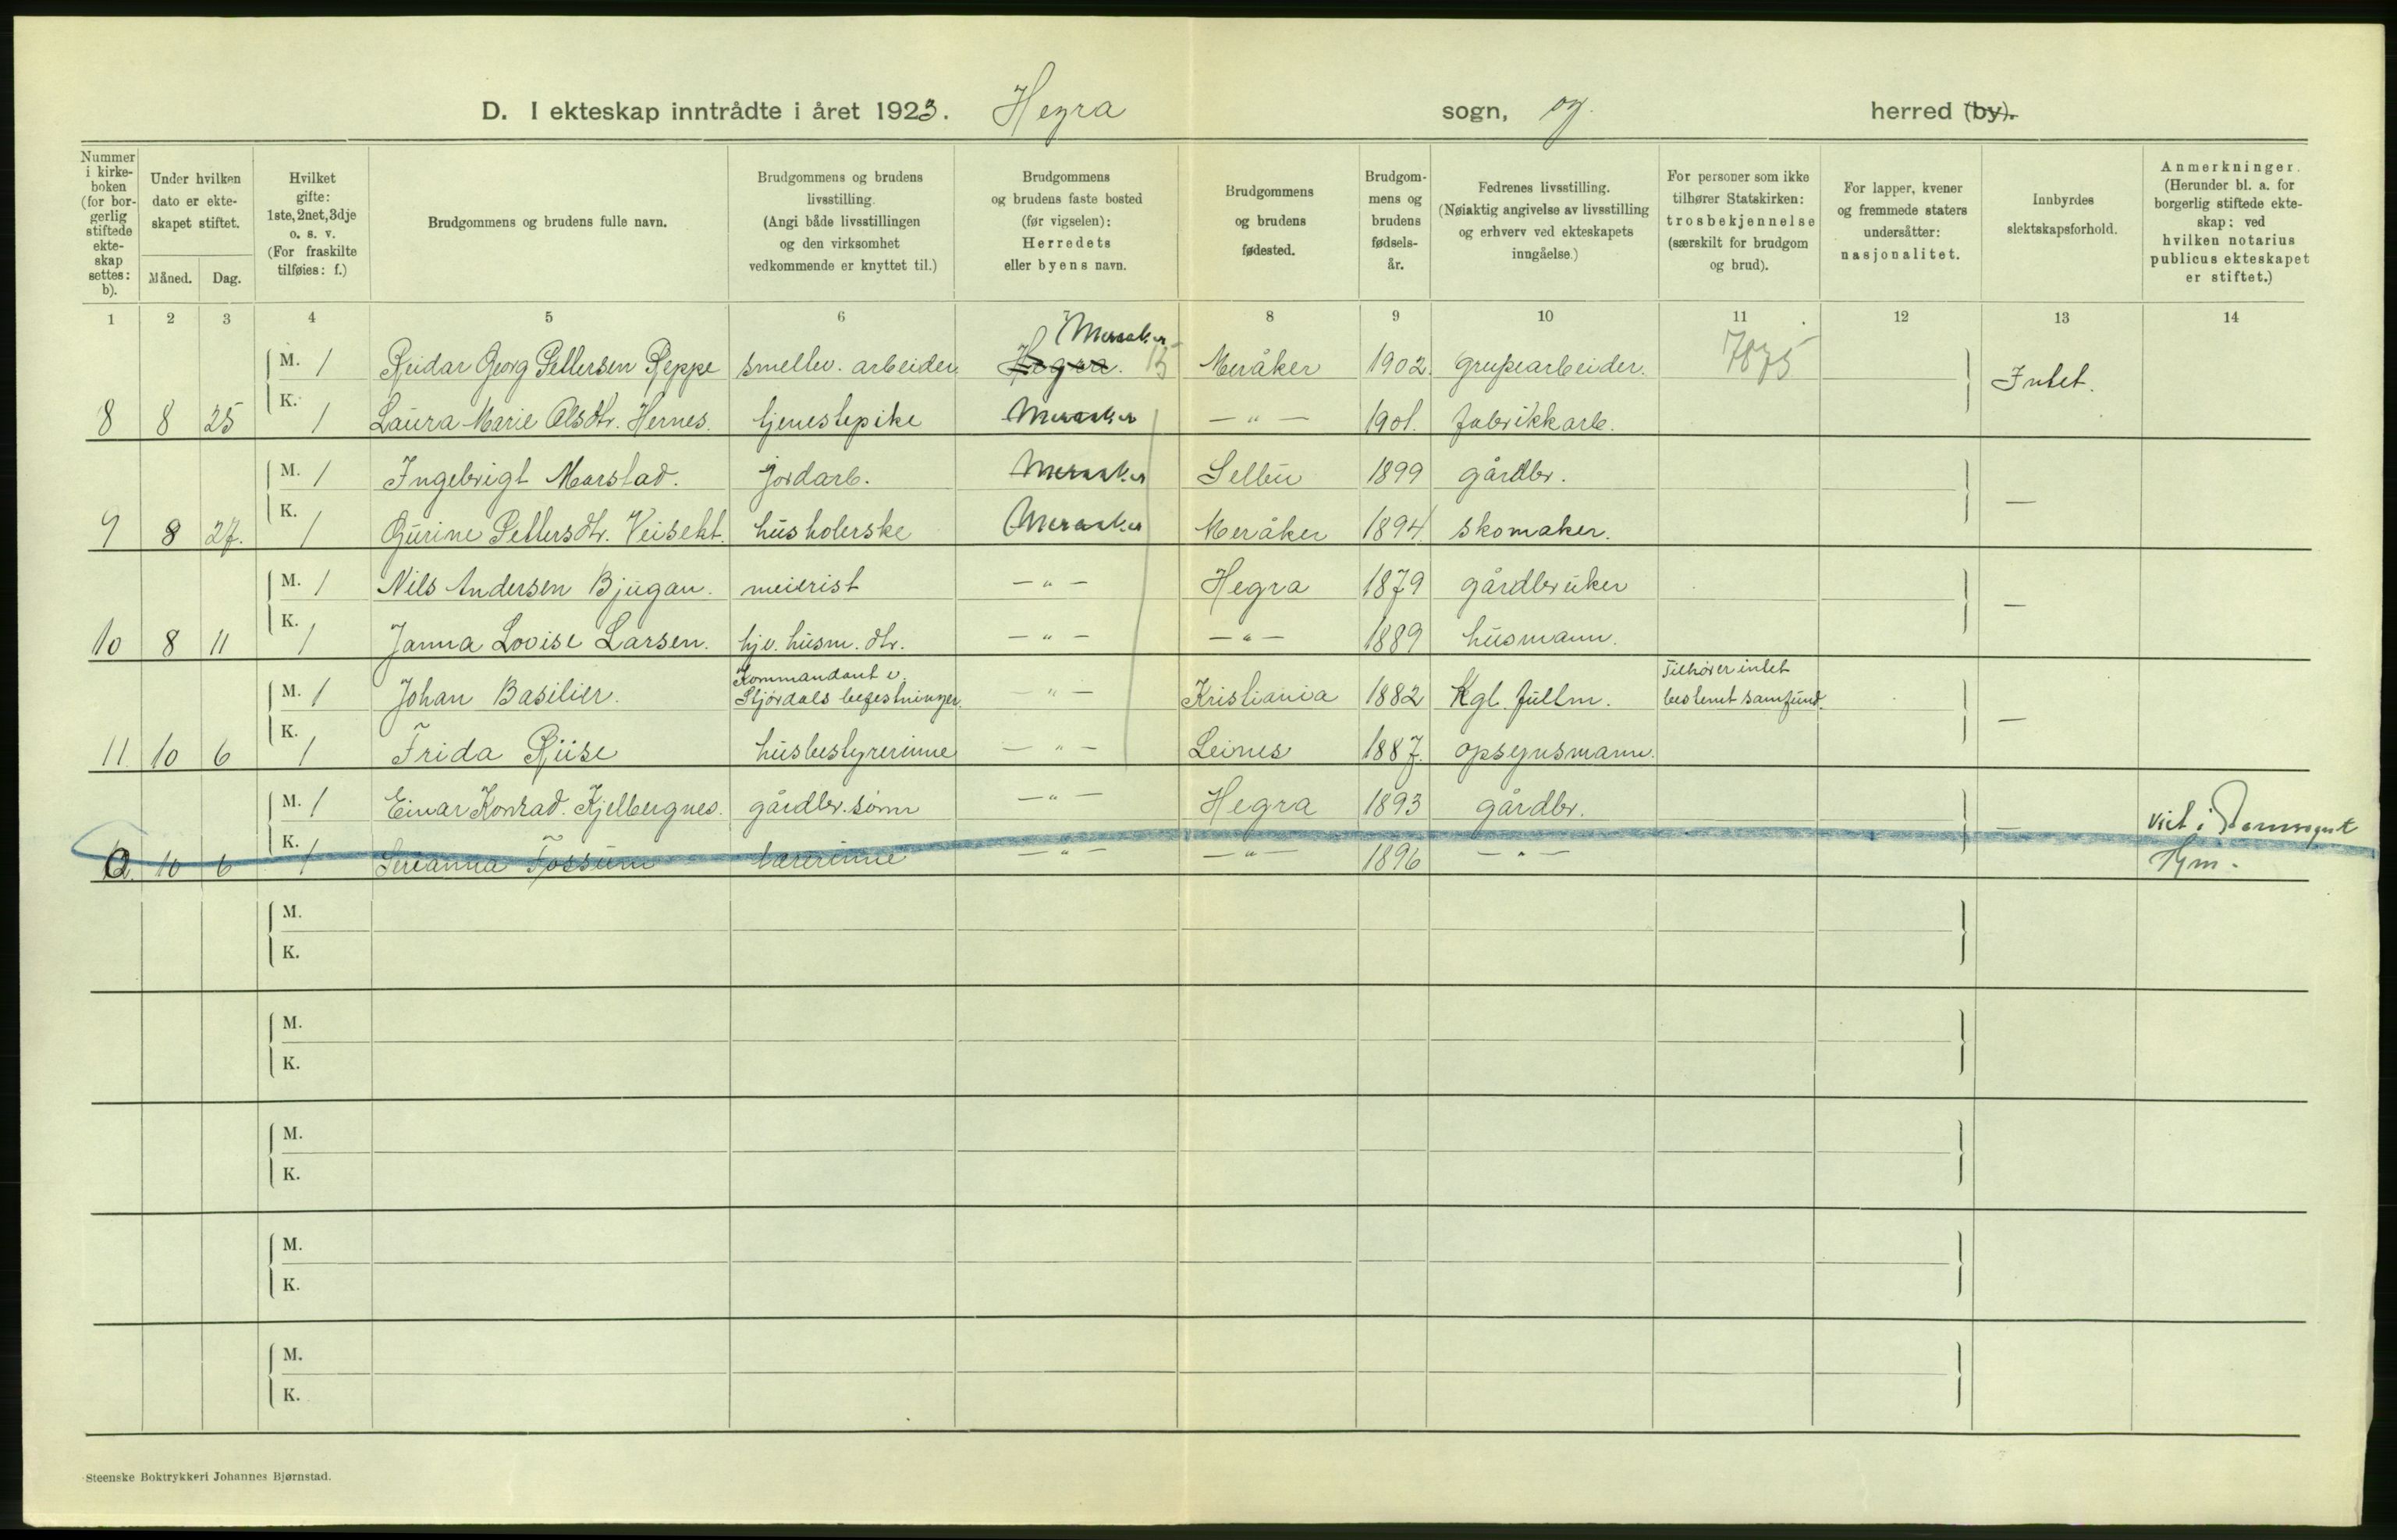 D. I ekteskap inntrådte i året 1923. Hegra sogn, og herred (by).
Nummer i kirke-boken (for bor-gerlig stiftede ekte-skap settes: b).
Under hvilken dato er ekte-skapet stiftet.
Måned. Dag.
Hvilket gifte: 1ste, 2net, 3dje o. s. v. (For fraskilte tilføies: f.)
Brudgommens og brudens fulle navn.
Brudgommens og brudens livsstilling. (Angi både livsstillingen og den virksomhet vedkommende er knyttet til.)
Brudgommens og brudens faste bosted (før vigselen): Herredets eller byens navn.
Brudgommens og brudens fødested.
Brudgom-mens og brudens fødsels-år.
Fedrenes livsstilling. (Nøiaktig angivelse av livsstilling og erhverv ved ekteskapets inngåelse.)
For personer som ikke tilhører Statskirken: trosbekjennelse (særskilt for brudgom og brud).
For lapper, kvener og fremmede staters undersåtter: nasjonalitet.
Innbyrdes slektskapsforhold.
Anmerkninger. (Herunder bl. a. for borgerlig stiftede ekte-skap: ved hvilken notarius publicus ekteskapet er stiftet.)
1 2 3 4 5 6 7 8 9 10 11 12 13 14
Meraker
M. 1 Reidar Georg Pettersen Reppe smeltev. arbeider Hegra. 15 Meråker 1902. grupearbeider. 7875 Intet.
8 8 25 K. 1 Laura Marie Olsdtr. Hernes. tjenestepike Meraker — " — 1901. fabrikkarb.
M. 1 Ingebrigt Marstad. jordarb. Meraker Selbu 1899 gårdbr. —
9 8 27. K. 1 Gurine Pettersdtr. Veiseth. husholerske Meraker Meråker 1894 skomaker.
M. 1 Nils Andersen Bjugan. meierist — " — Hegra 1879 gårdbruker —
10 8 11 K. 1 Janna Lovise Larsen. hjv. husm. dtr. — " — — " — 1889 husmann.
Kommandant v. Tilhører intet
M. 1 Johan Basilier. Stjørdals befestninger. — " — Kristiania 1882 Kgl. fullm. bestemt samfund. —
11 10 6 K. 1 Frida Riise husbestyrerinne — " — Leines 1887. opsynsmann.
M. 1 Einar Konrad Kjelbergnes. gårdbr. sønn — " — Hegra 1893 gårdbr. — Viet i
12. 10 6 K. 1 Serianna Fossum lærerinne — " — — " — 1896 — " — Thjm.
M.
K.
M.
K.
M.
K.
M.
K.
M.
K.
Steenske Boktrykkeri Johannes Bjørnstad.